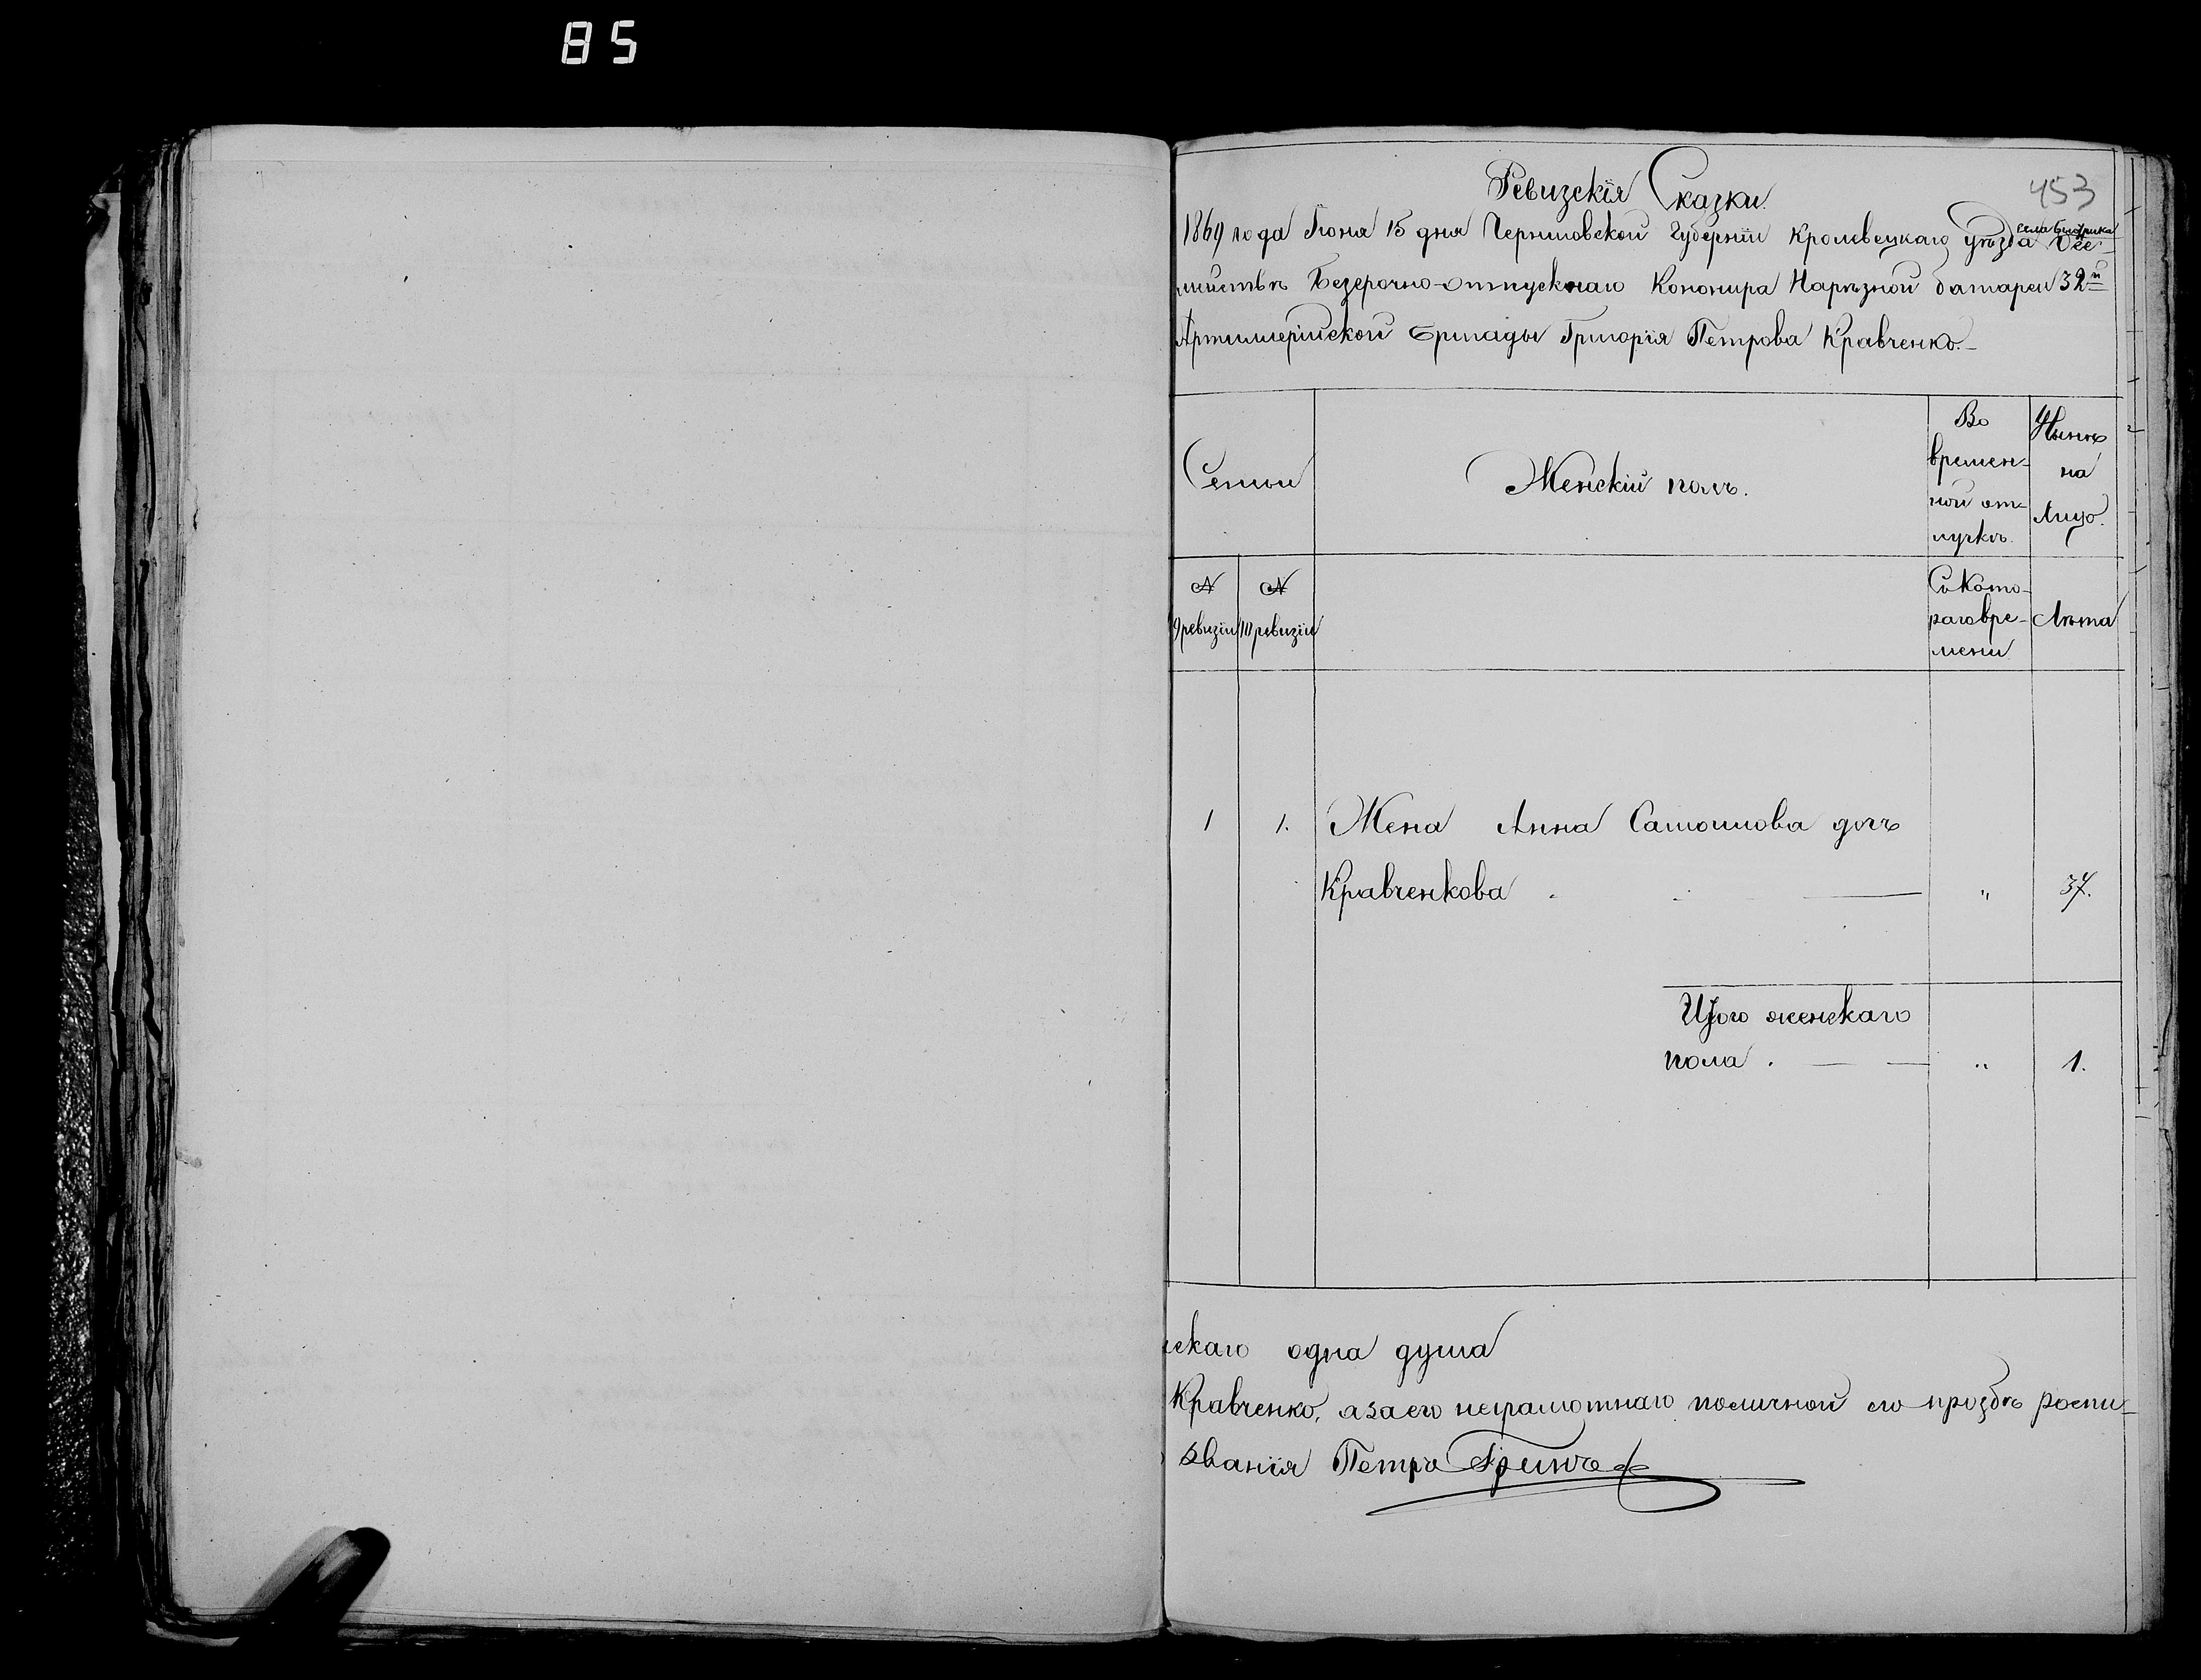 85
453
Ревизскія Сказки
1869 года Іюня 15 дня Черниговской Губерніи Кролевецкаго уѣзда села Быстрика О се-
мействѣ Безсрочно-отпускнаго Канонира Нарѣзной батареи 32й
Артиллерійской бригады Григорія Петрова Кравченко.
Семьи
Женскій полъ.
Во времен-
ной от-
лучкѣ.
Нынѣ
на
лицо.
№
9 ревизіи
№
10 ревизіи
Съ Кото-
раго вре-
мени.
Лѣта
1 1. Жена Анна Самойлова дочь
Кравченкова „ 37.
Итого женскаго
пола . „ 1.
скаго одна душа
Кравченко, а за его неграмотнаго поличной его прозбѣ роспи-
званія Петръ